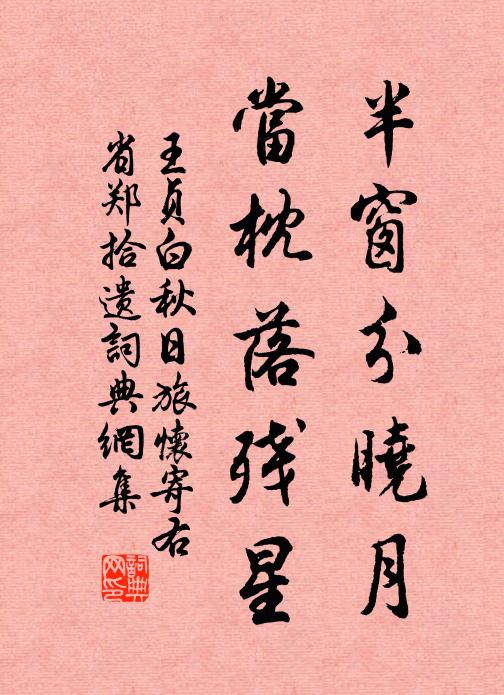 半窗分曉月
當枕落残星
王貞白秋日旅懷寄右
省郑拾遺詞典網集
詞典网印